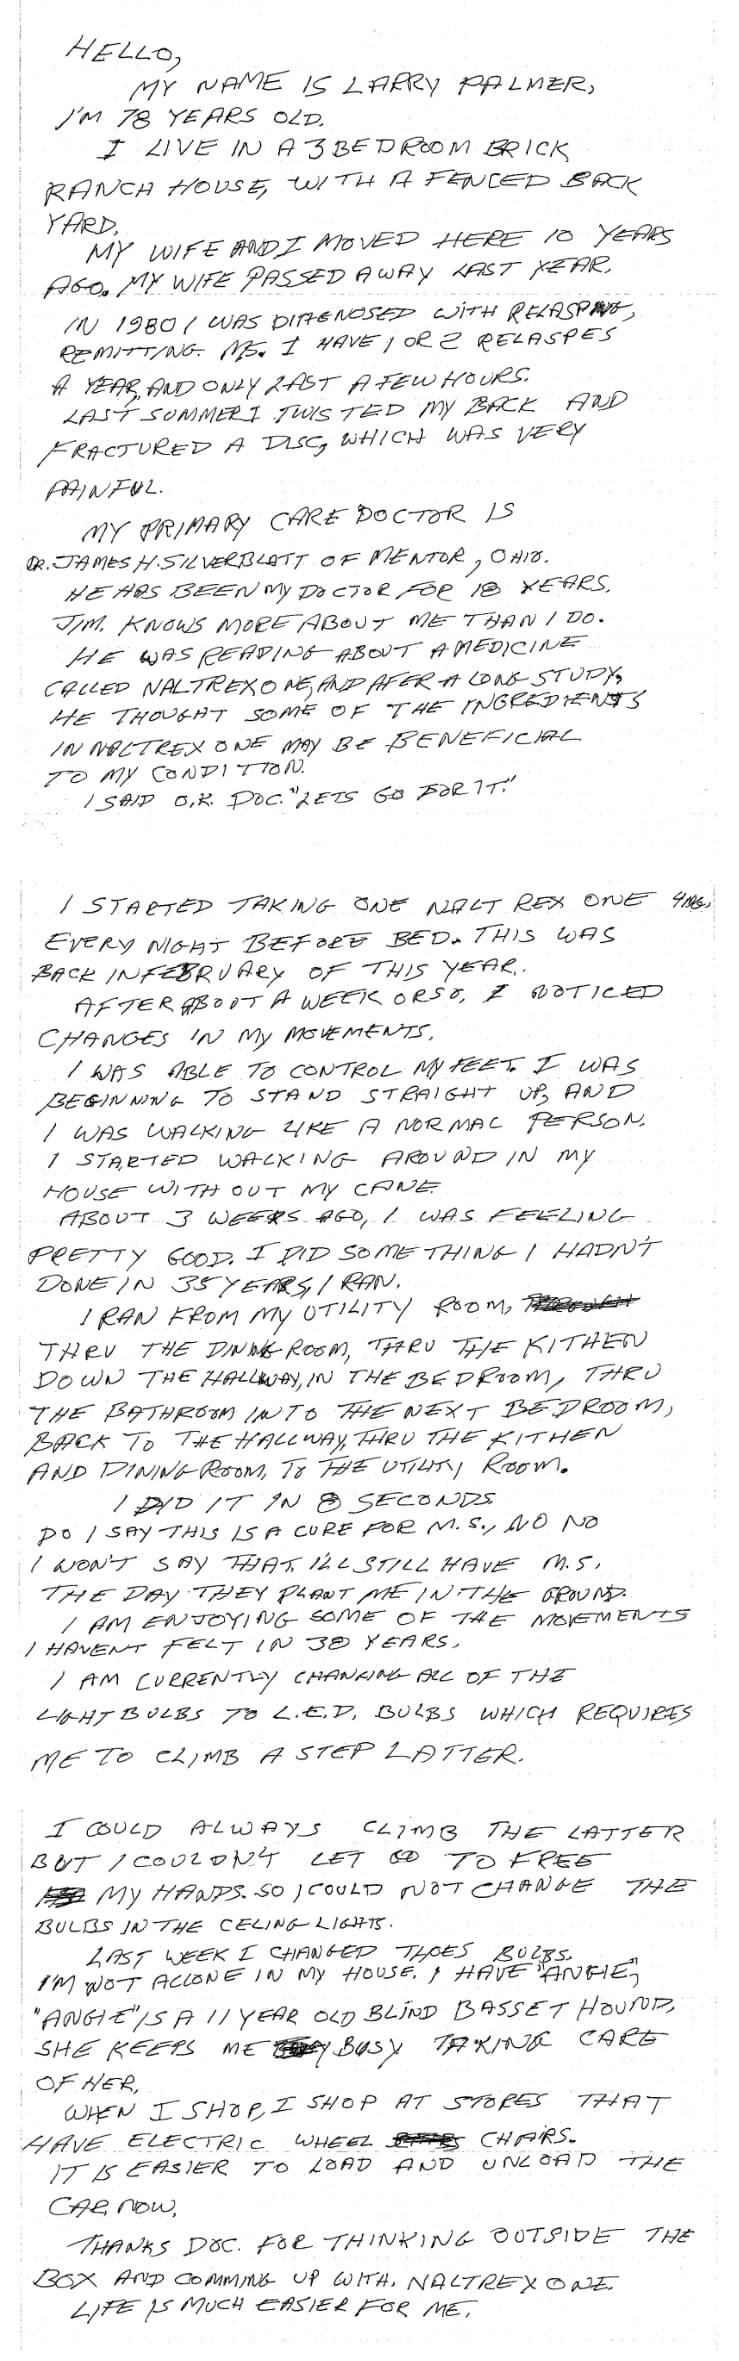 HELLO,
MY NAME IS LARRY PALMER,
I'M 78 YEARS OLD.
I LIVE IN A 3 BEDROOM BRICK
RANCH HOUSE, WITH A FENCED BACK
YARD.
MY WIFE AND I MOVED HERE 10 YEARS
AGO. MY WIFE PASSED AWAY LAST YEAR.
IN 1980 I WAS DIAGNOSED WITH RELASPING,
REMITTING. MS. I HAVE 1 OR 2 RELASPES
A YEAR, AND ONLY LAST A FEW HOURS.
LAST SUMMER I TWISTED MY BACK AND
FRACTURED A DISC, WHICH WAS VERY
PAINFUL.
MY PRIMARY CARE DOCTOR IS
DR. JAMES H. SILVERBLATT OF MENTOR, OHIO.
HE HAS BEEN MY DOCTOR FOR 18 YEARS.
JIM. KNOWS MORE ABOUT ME THAN I DO.
HE WAS READING ABOUT A MEDICINE
CALLED NALTREXONE, AND AFER A LONG STUDY,
HE THOUGHT SOME OF THE INGREDIENTS
IN NALTREXONE MAY BE BENEFICIAL
TO MY CONDITION.
I SAID O.K. DOC. "LETS GO FOR IT."
I STARTED TAKING ONE NALTREXONE 4MG,
EVERY NIGHT BEFORE BED. THIS WAS
BACK IN FEBRUARY OF THIS YEAR.
AFTER ABOUT A WEEK OR SO, I NOTICED
CHANGES IN MY MOVEMENTS.
I WAS ABLE TO CONTROL MY FEET. I WAS
BEGINNING TO STAND STRAIGHT UP, AND
I WAS WALKING LIKE A NORMAL PERSON.
I STARTED WALKING AROUND IN MY
HOUSE WITH OUT MY CANE
ABOUT 3 WEEKS AGO, I WAS FEELING
PRETTY GOOD. I DID SOMETHING I HADN'T
DONE IN 35 YEARS, I RAN.
I RAN FROM MY UTILITY ROOM,
THRU THE DINING ROOM, THRU THE KITHEN
DOWN THE HALLWAY, IN THE BEDROOM, THRU
THE BATHROOM INTO THE NEXT BEDROOM,
BACK TO THE HALLWAY, THRU THE KITHEN
AND DINING ROOM, TO THE UTILITY ROOM.
I DID IT IN 8 SECONDS
DO I SAY THIS IS A CURE FOR M.S., NO NO
I WON'T SAY THAT. I'LL STILL HAVE M.S.
THE DAY THEY PLANT ME IN THE GROUND.
I AM ENJOYING SOME OF THE MOVEMENTS
I HAVENT FELT IN 30 YEARS.
I AM CURRENTLY CHANKING ALL OF THE
LIGHT BULBS TO L.E.D. BULBS WHICH REQUIRES
ME TO CLIMB A STEP LATTER.
I COULD ALWAYS CLIMB THE LATTER
BUT I COULDN'T LET GO TO FREE
MY HANDS. SO I COULD NOT CHANGE THE
BULBS IN THE CELING LIGHTS.
LAST WEEK I CHANGED THOES BULBS.
I'M NOT ALLONE IN MY HOUSE. I HAVE "ANGIE",
"ANGIE" IS A 11 YEAR OLD BLIND BASSET HOUND,
SHE KEEPS ME BUSY TAKING CARE
OF HER.
WHEN I SHOP, I SHOP AT STORES THAT
HAVE ELECTRIC WHEEL CHAIRS.
IT IS EASIER TO LOAD AND UNLOAD THE
CAR NOW.
THANKS DOC. FOR THINKING OUTSIDE THE
BOX AND COMMING UP WITH. NALTREXONE.
LIFE IS MUCH EASIER FOR ME.